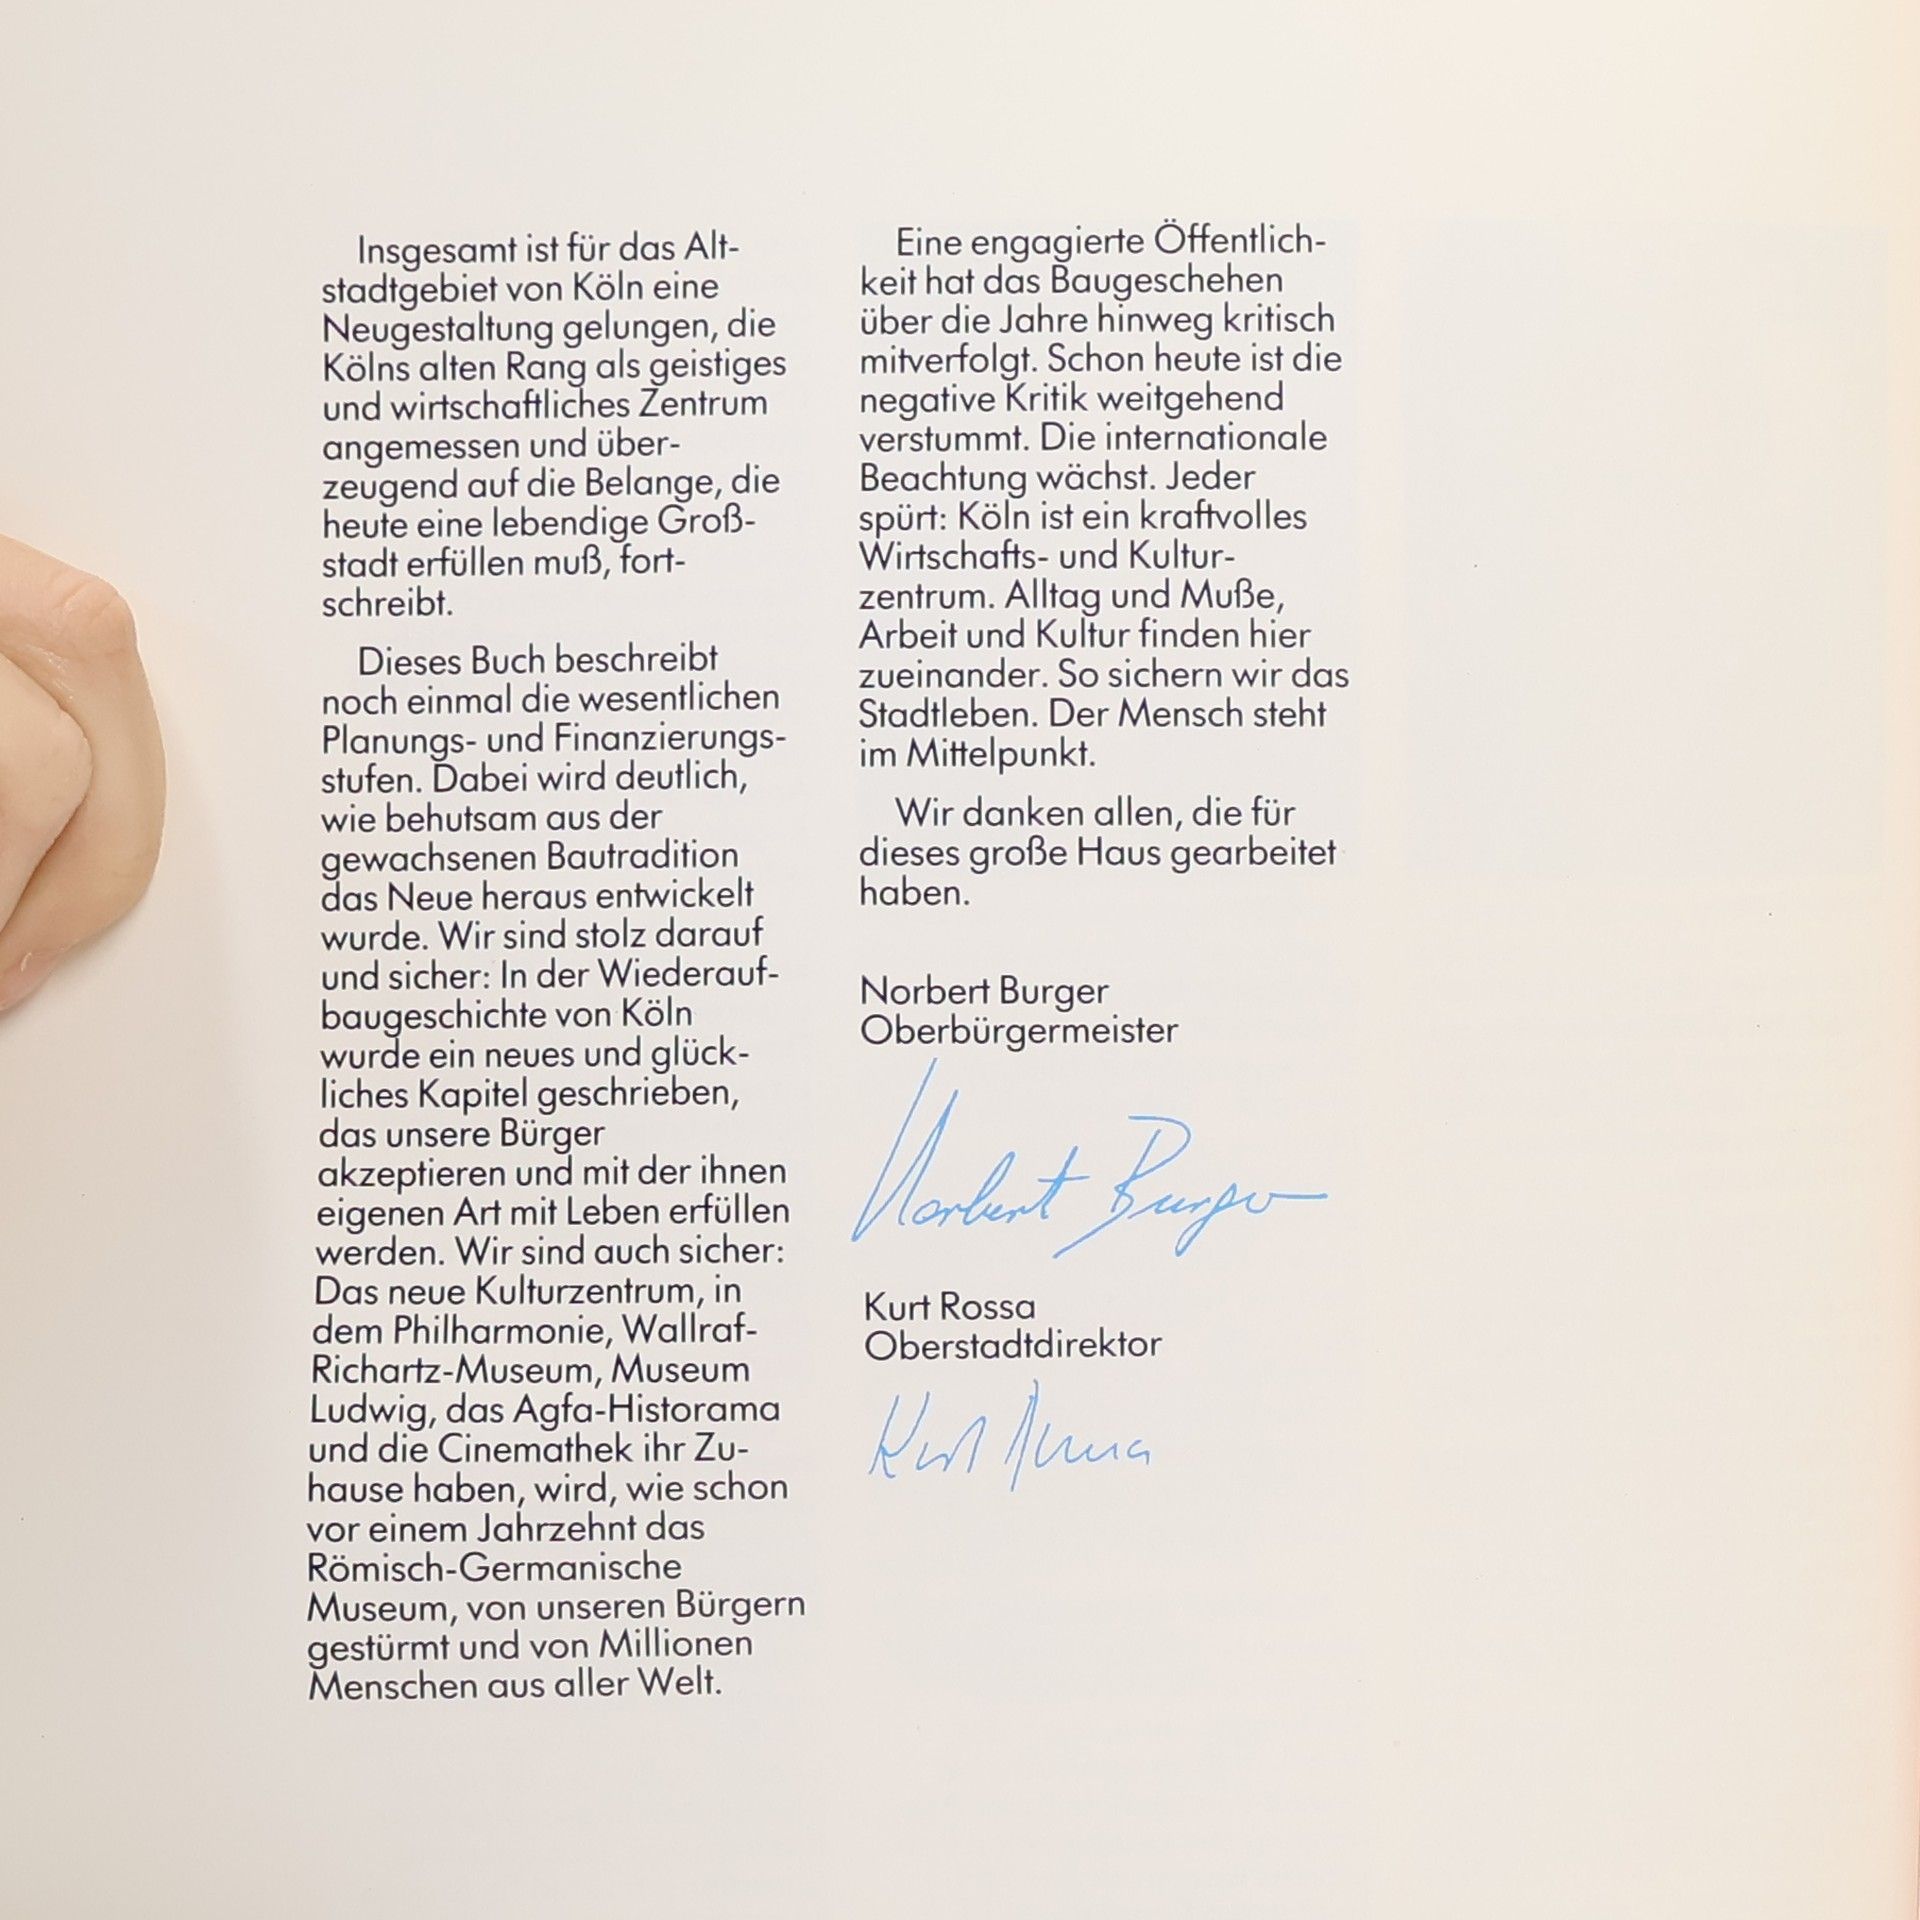 Insgesamt ist für das Alt-
stadtgebiet von Köln eine
Neugestaltung gelungen, die
Kölns alten Rang als geistiges
und wirtschaftliches Zentrum
angemessen und über-
zeugend auf die Belange, die
heute eine lebendige Groß-
stadt erfüllen muß, fort-
schreibt.
Dieses Buch beschreibt
noch einmal die wesentlichen
Planungs- und Finanzierungs-
stufen. Dabei wird deutlich,
wie behutsam aus der
gewachsenen Bautradition
das Neue heraus entwickelt
wurde. Wir sind stolz darauf
und sicher: In der Wiederauf-
baugeschichte von Köln
wurde ein neues und glück-
liches Kapitel geschrieben,
das unsere Bürger
akzeptieren und mit der ihnen
eigenen Art mit Leben erfüllen
werden. Wir sind auch sicher:
Das neue Kulturzentrum, in
dem Philharmonie, Wallraf-
Richartz-Museum, Museum
Ludwig, das Agfa-Historama
und die Cinemathek ihr Zu-
hause haben, wird, wie schon
vor einem Jahrzehnt das
Römisch-Germanische
Museum, von unseren Bürgern
gestürmt und von Millionen
Menschen aus aller Welt.
Eine engagierte Öffentlich-
keit hat das Baugeschehen
über die Jahre hinweg kritisch
mitverfolgt. Schon heute ist die
negative Kritik weitgehend
verstummt. Die internationale
Beachtung wächst. Jeder
spürt: Köln ist ein kraftvolles
Wirtschafts- und Kultur-
zentrum. Alltag und Muße,
Arbeit und Kultur finden hier
zueinander. So sichern wir das
Stadtleben. Der Mensch steht
im Mittelpunkt.
Wir danken allen, die für
dieses große Haus gearbeitet
haben.
Norbert Burger
Oberbürgermeister
Norbert Burger
Kurt Rossa
Oberstadtdirektor
Kurt Rossa